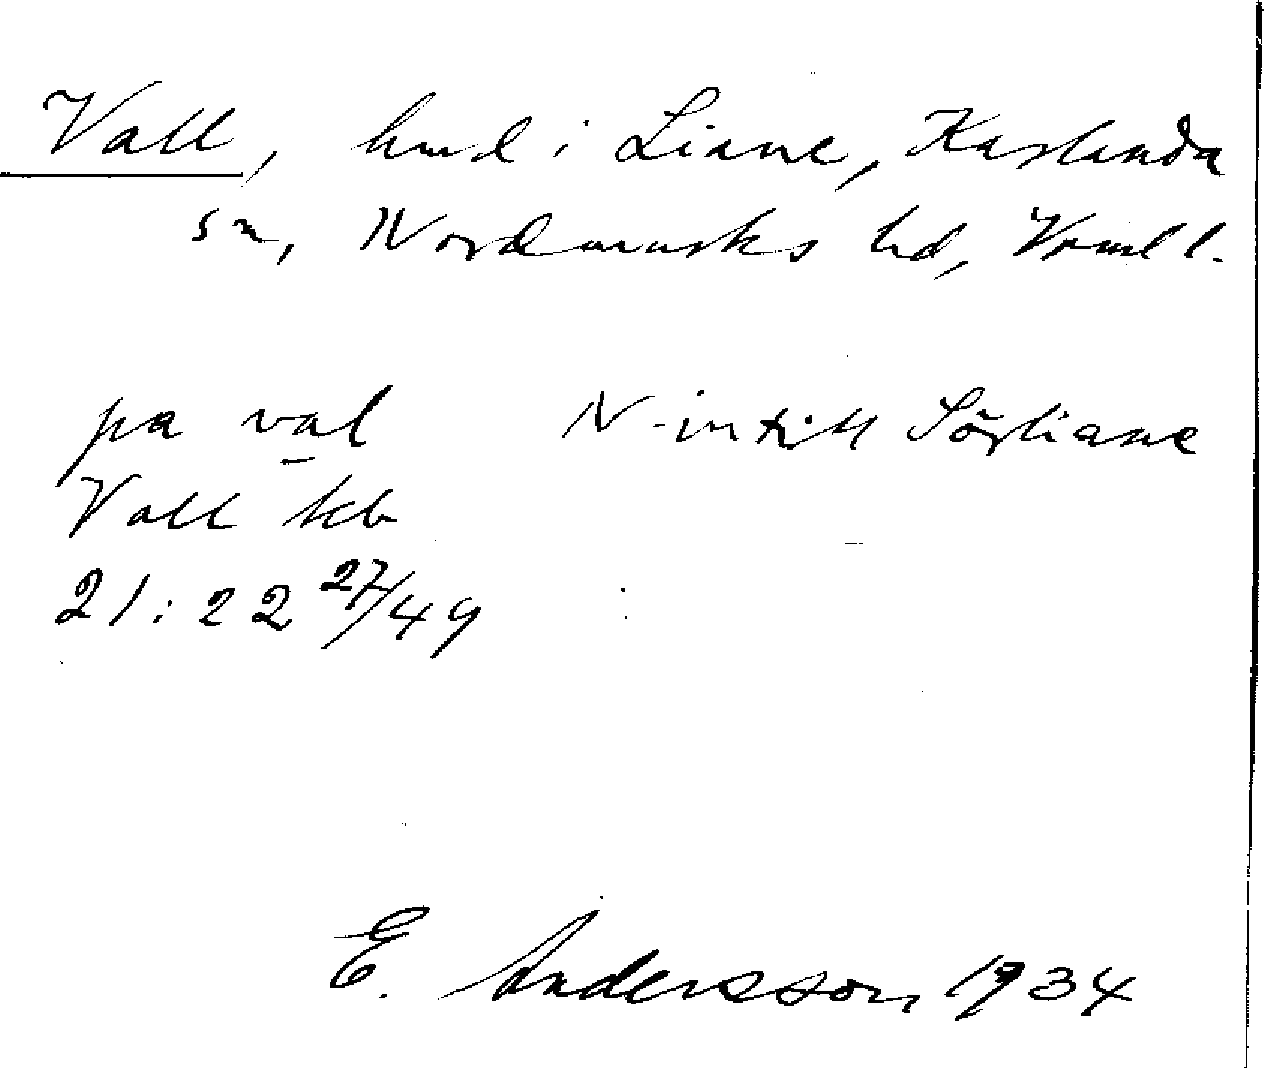 Vall, hmd i Liane, Karlanda
sn, Nordmarks hd, Vrml l.
pa val N-intill Sörliane
Vall kb
21:22 27/49
E. Andersson 1934